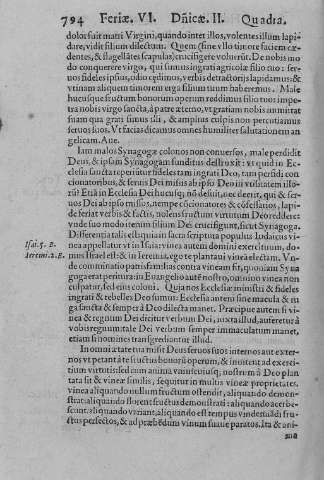 794 Feriæ. VI. Dñicæ. II. Quadra.
dolor fuit matri Virgini, quando inter illos, volentes illum lapi-
dare, vidit filium dilectum. Quem (sine vllo timore faciem cæ-
dentes, & flagellātes scapulas) crucifigere voluerūt. De nobis mo
do conquerere virgo, qui sumus ingrati agricolæ filio tuo: ser-
uos fideles ipsius, odio credimus, verbis detractorijs lapidamus: &
vtinam aliquem timorem erga filium tuum haberemus. Male
hucusque fructum bonorum operum reddidimus filio tuo: impe-
tra nobis virgo sancta, à patre æterno, vt gratiam nobis immittat
suam qua grati simus illi, & amplius culpis non percutiamus
seruos suos. Vt facias dicamus omnes humiliter salutationem an
gelicam. Aue.
Iam malos Synagogæ colonos non conuersos, male perdidit
Deus, & ipsam Synagogam funditus destruxit: vt quid in Ec-
clesia sancta reperiūtur fideles tam ingrati Deo, tam perfidi con-
cionatoribus, & seruis Dei missis ab ipso Deo in visitatem illo-
rū? Etiā in Ecclesia Dei hucusq; nō desiūt, nec deerit, qui & ser-
uos Dei ab ipso missos, nempe cōcionatores & cōfessarios, lapi-
de feriat verbis & factis, nolens fructum virtutum Deo reddere:
vnde suo modo iterum filium Dei crucifigunt, sicut Synagoga.
Differentia est aliqualis: quia in sacra scriptura populus Iudaicus vi-
Isai. 5. B. nea appellatur vt in Isaia: vinea autem domini exercituum, do-
Ieremi. 2. B. mus Israel est: & in Ieremia, ego te plantaui vineā electam. Vn-
de comminatio patrisfamilias contra vineam fit, quoniam Syna
goga erat peritura: in Euangelio autē nostro, omnino vinea non
culpatur, sed eius coloni. Quia nos Ecclesiæ ministri & fideles
ingrati & rebelles Deo sumus: Ecclesia autem sine macula & ru
ga sancta & semper à Deo dilecta manet. Præcipue autem si vi-
nea & regnum Dei dicitur verbum Dei, iuxta illud, auferetur à
vobis regnum: tale Dei verbum semper immaculatum manet,
etiam si homines transgrediantur illud.
In omni ætate tua misit Deus seruos suos internos aut exter-
nos vt petant à te fructus bonorū operū, & innotent ad exerci-
tium virtutis: sed cum anima vnuscuiusq; nostrum à Deo plan
tata sit & vineæ similis, sequitur in multis vineæ proprietates.
vinea aliquando nullum fructum ostendit, aliquando demon-
strat: aliquando florent fructus demonstrati: aliquando acerbe-
scunt: aliquando variant, aliquando est tempus vindemiādi fru-
ctus perfectos, & ad præbēdum vinum suaue paratos. Ita & ani-
ma